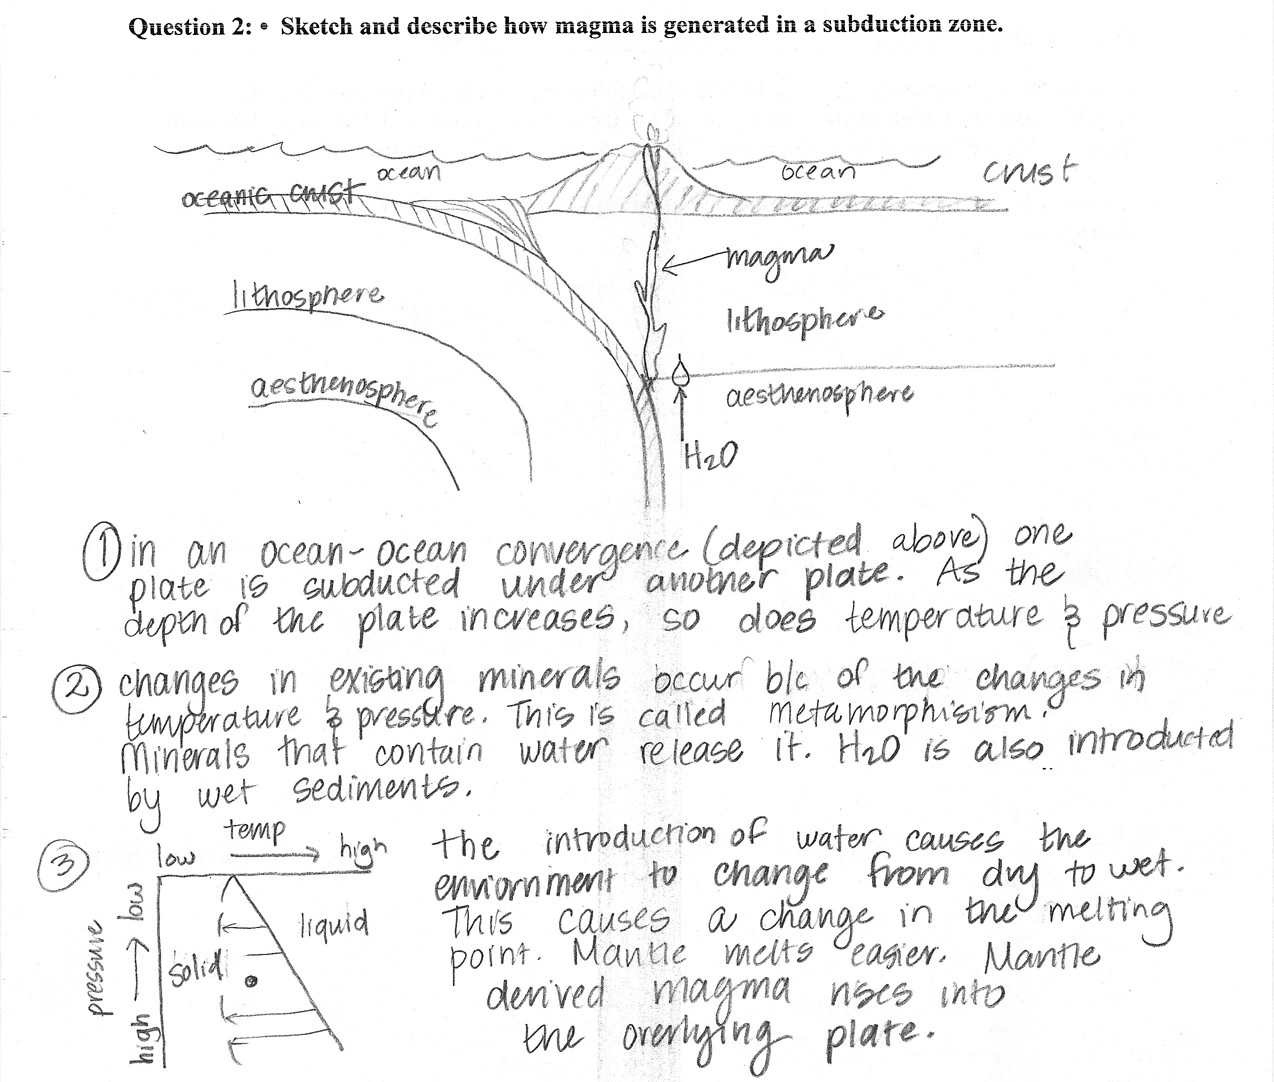 Question 2: • Sketch and describe how magma is generated in a subduction zone.
ocean
ocean
crust
oceanic crust
magma
lithosphere
lithosphere
aesthenosphere
aesthenosphere
H2O
① in an ocean-ocean convergence (depicted above) one
plate is subducted under another plate. As the
depth of the plate increases, so does temperature & pressure
② changes in existing minerals occur b/c of the changes in
temperature & pressure. This is called metamorphisism.
Minerals that contain water release it. H2O is also introducted
by wet sediments.
③
temp
low → high
pressure
high → low
solid
liquid
the introduction of water causes the
enviornment to change from dry to wet.
This causes a change in the melting
point. Mantle melts easier. Mantle
derived magma rises into
the overlying plate.